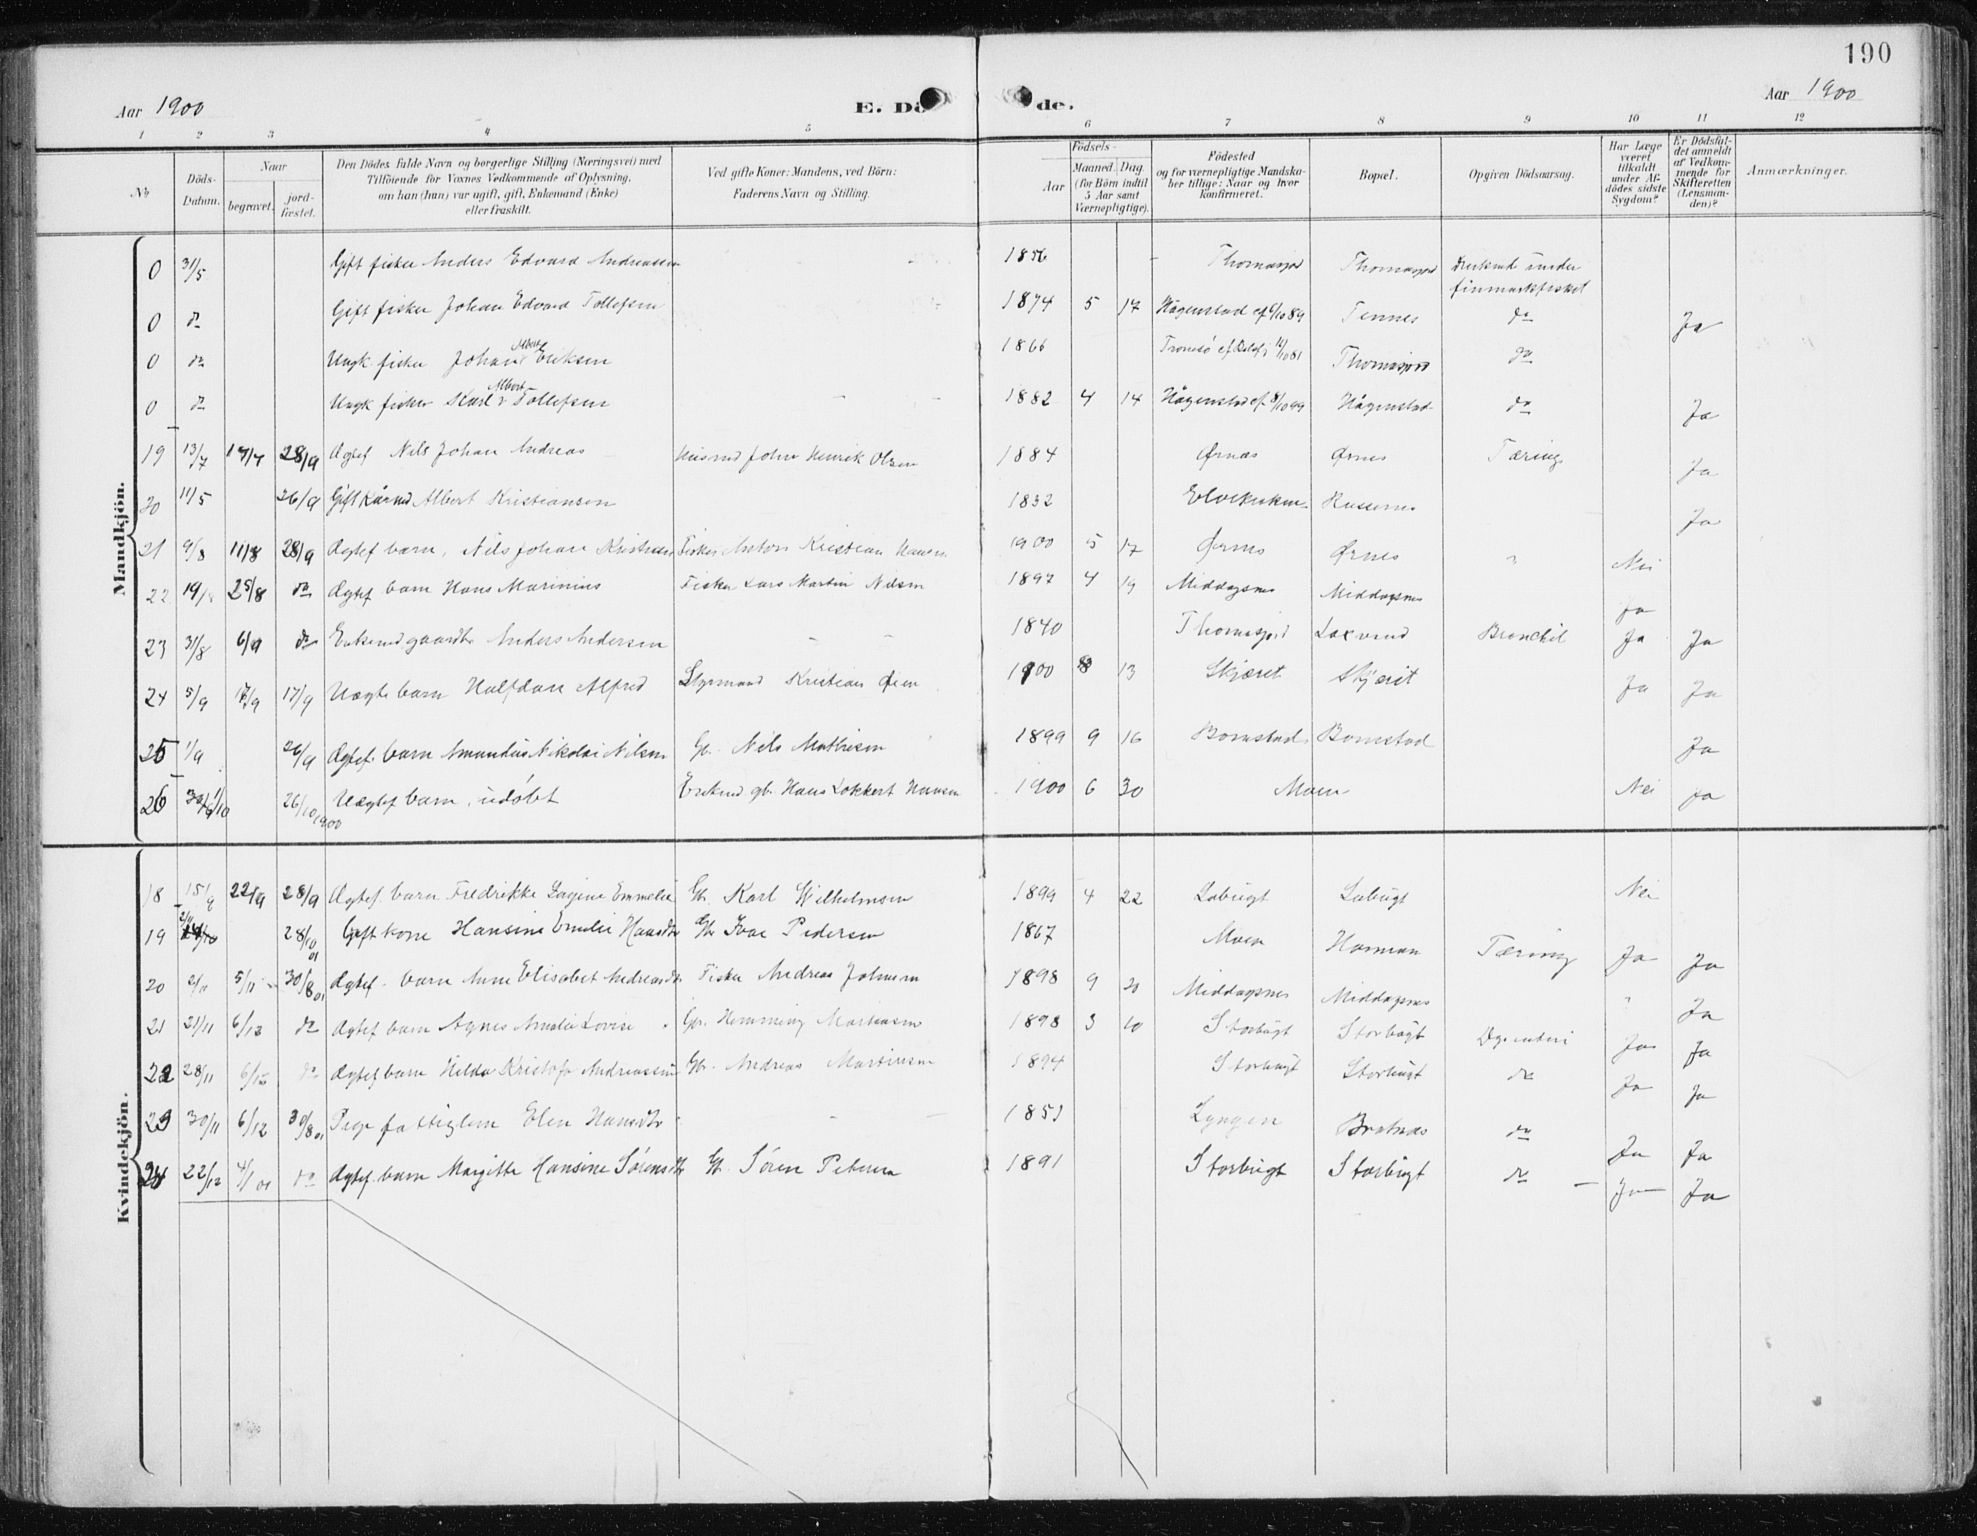 190
Aar 1900 E. Dö de. Aar 1900
1 2 3 4 5 6 7 8 9 10 11 12
No Döds-Datum. Naar begravet. jord-fæstet. Den Dödes fulde Navn og borgerlige Stilling (Næringsvei) med Tilföiende for Voxnes Vedkommende af Oplysning, om hun (han) var ugift, gift, Enkemand (Enke) eller fraskilt. Ved gifte Koner: Mandens, ved Börn: Faderens Navn og Stilling. Födsels- Aar Maaned. Dag. (for Börn indtil 5 Aar samt Værnepligtige). Födested og for værnepligtige Mandska-ber tillige: Naar og hvor konfirmeret. Bopæl. Opgiven Dödsaarsag. Har Læge været tilkaldt under Af-dödes sidste Sygdom? Er Dödsfal-det anmeldt af Vedkom-mende for Skifteretten (Lensman-den)? Anmærkninger.
Mandkjön.
0 31/5 Gift fisker Anders Edvard Andreassen 1856 Thomasjord Thomasjord under finmarkfisket
0 do Gift fisker Johan Edvard Tollefsen 1874 5 17 Hågenstad cf 89 Tennes do Ja
0 do Ungk. fisker Johan Albert Eriksen 1866 Tromsö cf. 81 Thomasjord do
0 do Ungk fisker Karl Albert Tollefsen 1882 4 14 Hågenstad cf. 99 Hågenstad do Ja
19 13/7 17/7 28/9 Ægtef Nils Johan Andreas Husmd John Henrik Olsen 1884 Ørnes Ørnes Tæring Ja
20 11/5 26/9 Gift Kårmd Albert Kristiansen 1832 Elvebakken Ja
21 9/8 11/8 28/9 Ægtef barn. Nils Johan Fisker Anton Kristian Hansen 1900 5 17 Ørnes Ørnes " Nei
22 19/8 25/8 do Ægtef barn Hans Marinius Fisker Lars Martin Nilsen 1897 4 19 Middagsnes Middagsnes Ja
23 31/8 6/9 do Enkemd gaardbr Anders Andersen 1840 Thomasjord Laxvand Bronchit Ja Ja
24 5/9 17/9 17/9 Uægte barn Halfdan Alfred Styrmand Kristian Øien 1900 8 13 Skjæret Skjæret Ja Ja
25 1/9 26/9 Ægtef. barn Amandus Nikolai Nilsen Gb. Nils Mathisen 1899 9 16 Bomstad Bomstad Ja
26 1/10 26/10 1900 Uægtef barn, udøbt Enkmd gb. Hans Lokkert Hansen 1900 6 30 Moen Nei Ja
Kvindekjön.
18 15/9 22/9 28/9 Ægtef. barn Fredrikke Emmelie Gb. Karl Wilhelmsen 1899 4 22 Nei
19 2/11 28/10 01 Gift kone Hansine Emilie Hansdtr Gb Ivar Pedersen 1867 Moen Tæring Ja Ja
20 2/11 5/11 30/8 01 Ægtef. barn Anne Elisabet Andreasdtr Fisker Andreas Johnsen 1898 9 20 Middagsnes Middagsnes " Ja
21 21/11 6/12 do Ægtef barn Agnes Amalie Lovise Gbr. Hemming Martinsen 1898 3 10 Storbugt Storbugt Ja Ja
22 28/11 6/12 do Ægtef barn Hilda Kristofa Andreassen Gb. Andreas Martinsen 1894 Storbugt Storbugt do Ja Ja
23 30/11 6/12 30/8 01 Pige fattiglem Elen Hansdtr 1851 Lyngen do Ja Ja
24 22/12 4/1 01 do Ægtef. barn Margitte Hansine Sørensdtr Gb. Søren Petersen 1891 Storbugt Storbugt do Ja Ja